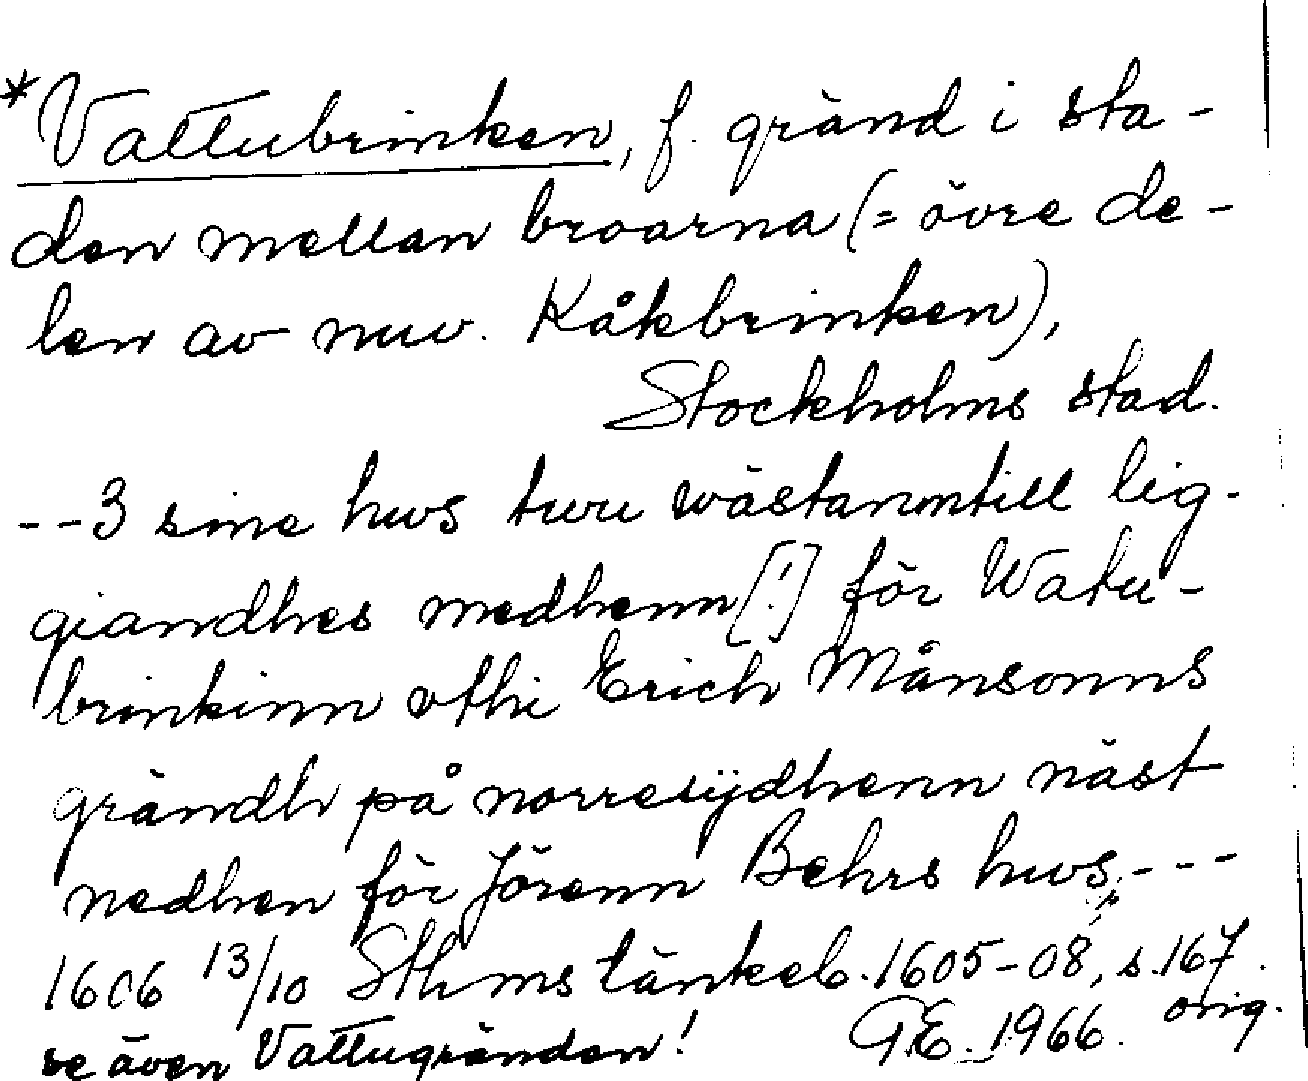 *Vattubrinken, f. gränd i sta-
den mellan broarna (= övre de-
len av nuv. Kåkbrinken),
Stockholms stad.
--3 sine hws twu wästanntill lig-
giandhes medhenn [!] för Watu-
brinkinn vthi Erich Månsonns
grändh på norresÿdhenn näst
nedhen för Jörenn Behrs hws, ---
1606 13/10 Sthms tänkeb. 1605-08, s. 167.
orig.
se även Vattugränden! GE. 1966.